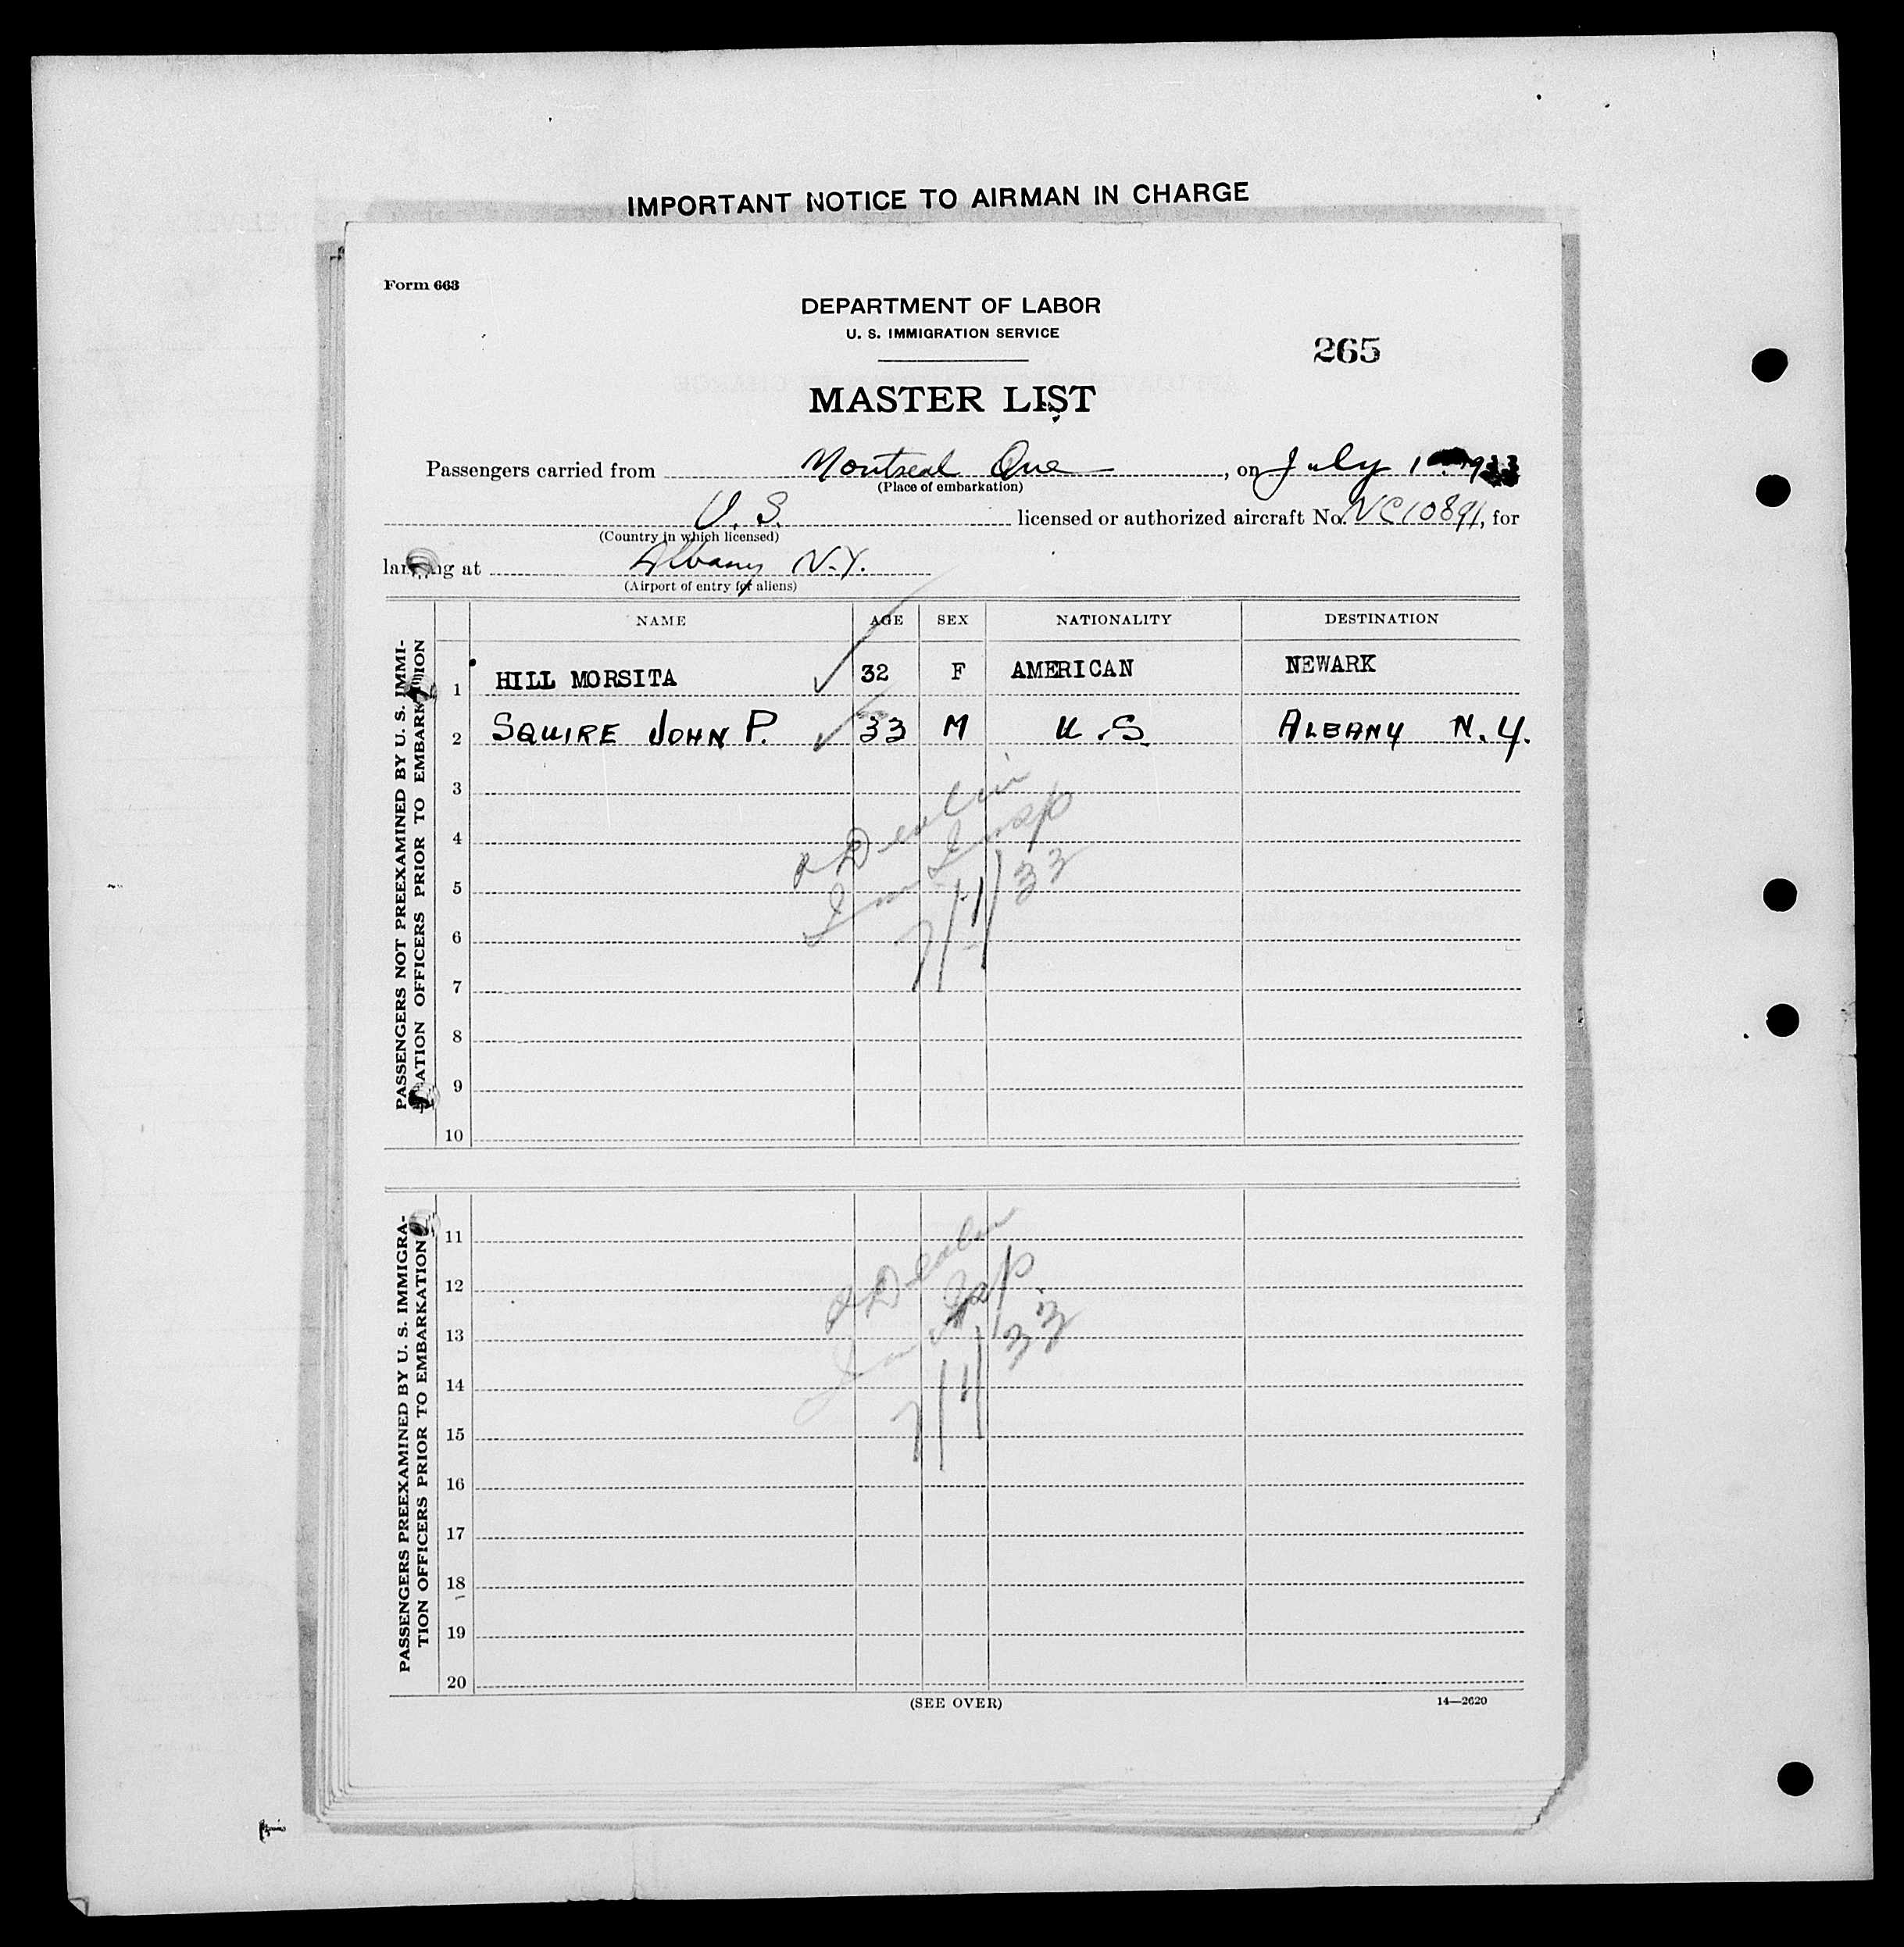 IMPORTANT NOTICE TO AIRMAN IN CHARGE
Form 663
DEPARTMENT OF LABOR
U. S. IMMIGRATION SERVICE
265
MASTER LIST
Passengers carried from Montreal Que, on July 1 1933
(Place of embarkation)
U.S. licensed or authorized aircraft No. NC10891, for
(Country in which licensed)
landing at Albany N.Y.
(Airport of entry for aliens)
NAME AGE SEX NATIONALITY DESTINATION
PASSENGERS NOT PREEXAMINED BY U. S. IMMI-
GRATION OFFICERS PRIOR TO EMBARKATION
1 HILL MORSITA 32 F AMERICAN NEWARK
2 SQUIRE JOHN P. 33 M U.S. ALBANY N.Y.
3
4
5
6
7
8
9
10
Imm Insp
7/1/33
PASSENGERS PREEXAMINED BY U. S. IMMIGRA-
TION OFFICERS PRIOR TO EMBARKATION
11
12
13
14
15
16
17
18
19
20
Imm Insp
7/1/33
(SEE OVER)
14—2620